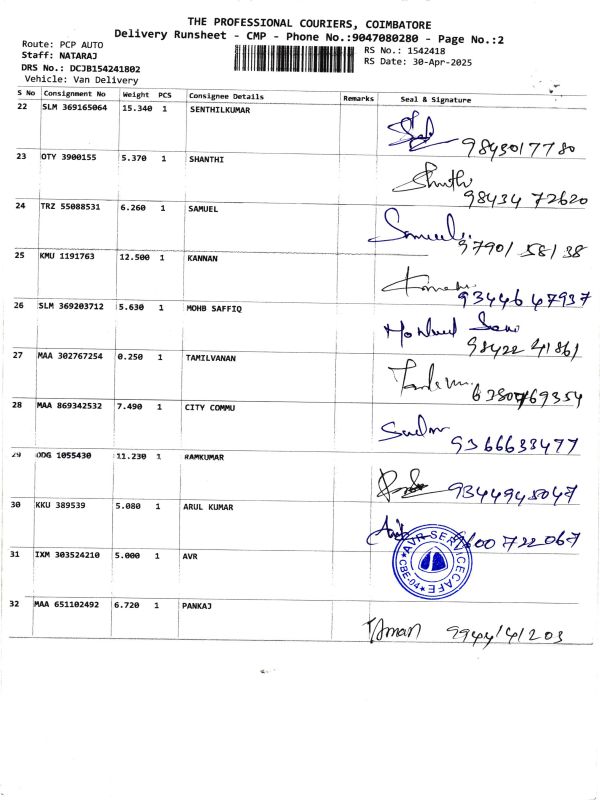 THE PROFESSIONAL COURIERS, COIMBATORE
Delivery Runsheet - CMP - Phone No.:9047080280 - Page No.:2
Route: PCP AUTO
Staff: NATARAJ
DRS No.: DCJB154241802
Vehicle: Van Delivery
RS No.: 1542418
RS Date: 30-Apr-2025
S No Consignment No Weight PCS Consignee Details Remarks Seal & Signature
22 SLM 369165064 15.340 1 SENTHILKUMAR
9843017780
23 OTY 3900155 5.370 1 SHANTHI
Shnthi
98434 72620
24 TRZ 55088531 6.260 1 SAMUEL
Samuel
97901 58138
25 KMU 1191763 12.500 1 KANNAN
9344647937
26 SLM 369203712 5.630 1 MOHB SAFFIQ
98422 41861
27 MAA 302767254 0.250 1 TAMILVANAN
28 MAA 869342532 7.490 1 CITY COMMU
9366633477
29 ODG 1055430 11.230 1 RAMKUMAR
9344948047
30 KKU 389539 5.080 1 ARUL KUMAR
9600722067
31 IXM 303524210 5.000 1 AVR
AVR SERVICE CAFE
CBE-04
32 MAA 651102492 6.720 1 PANKAJ
9944141203